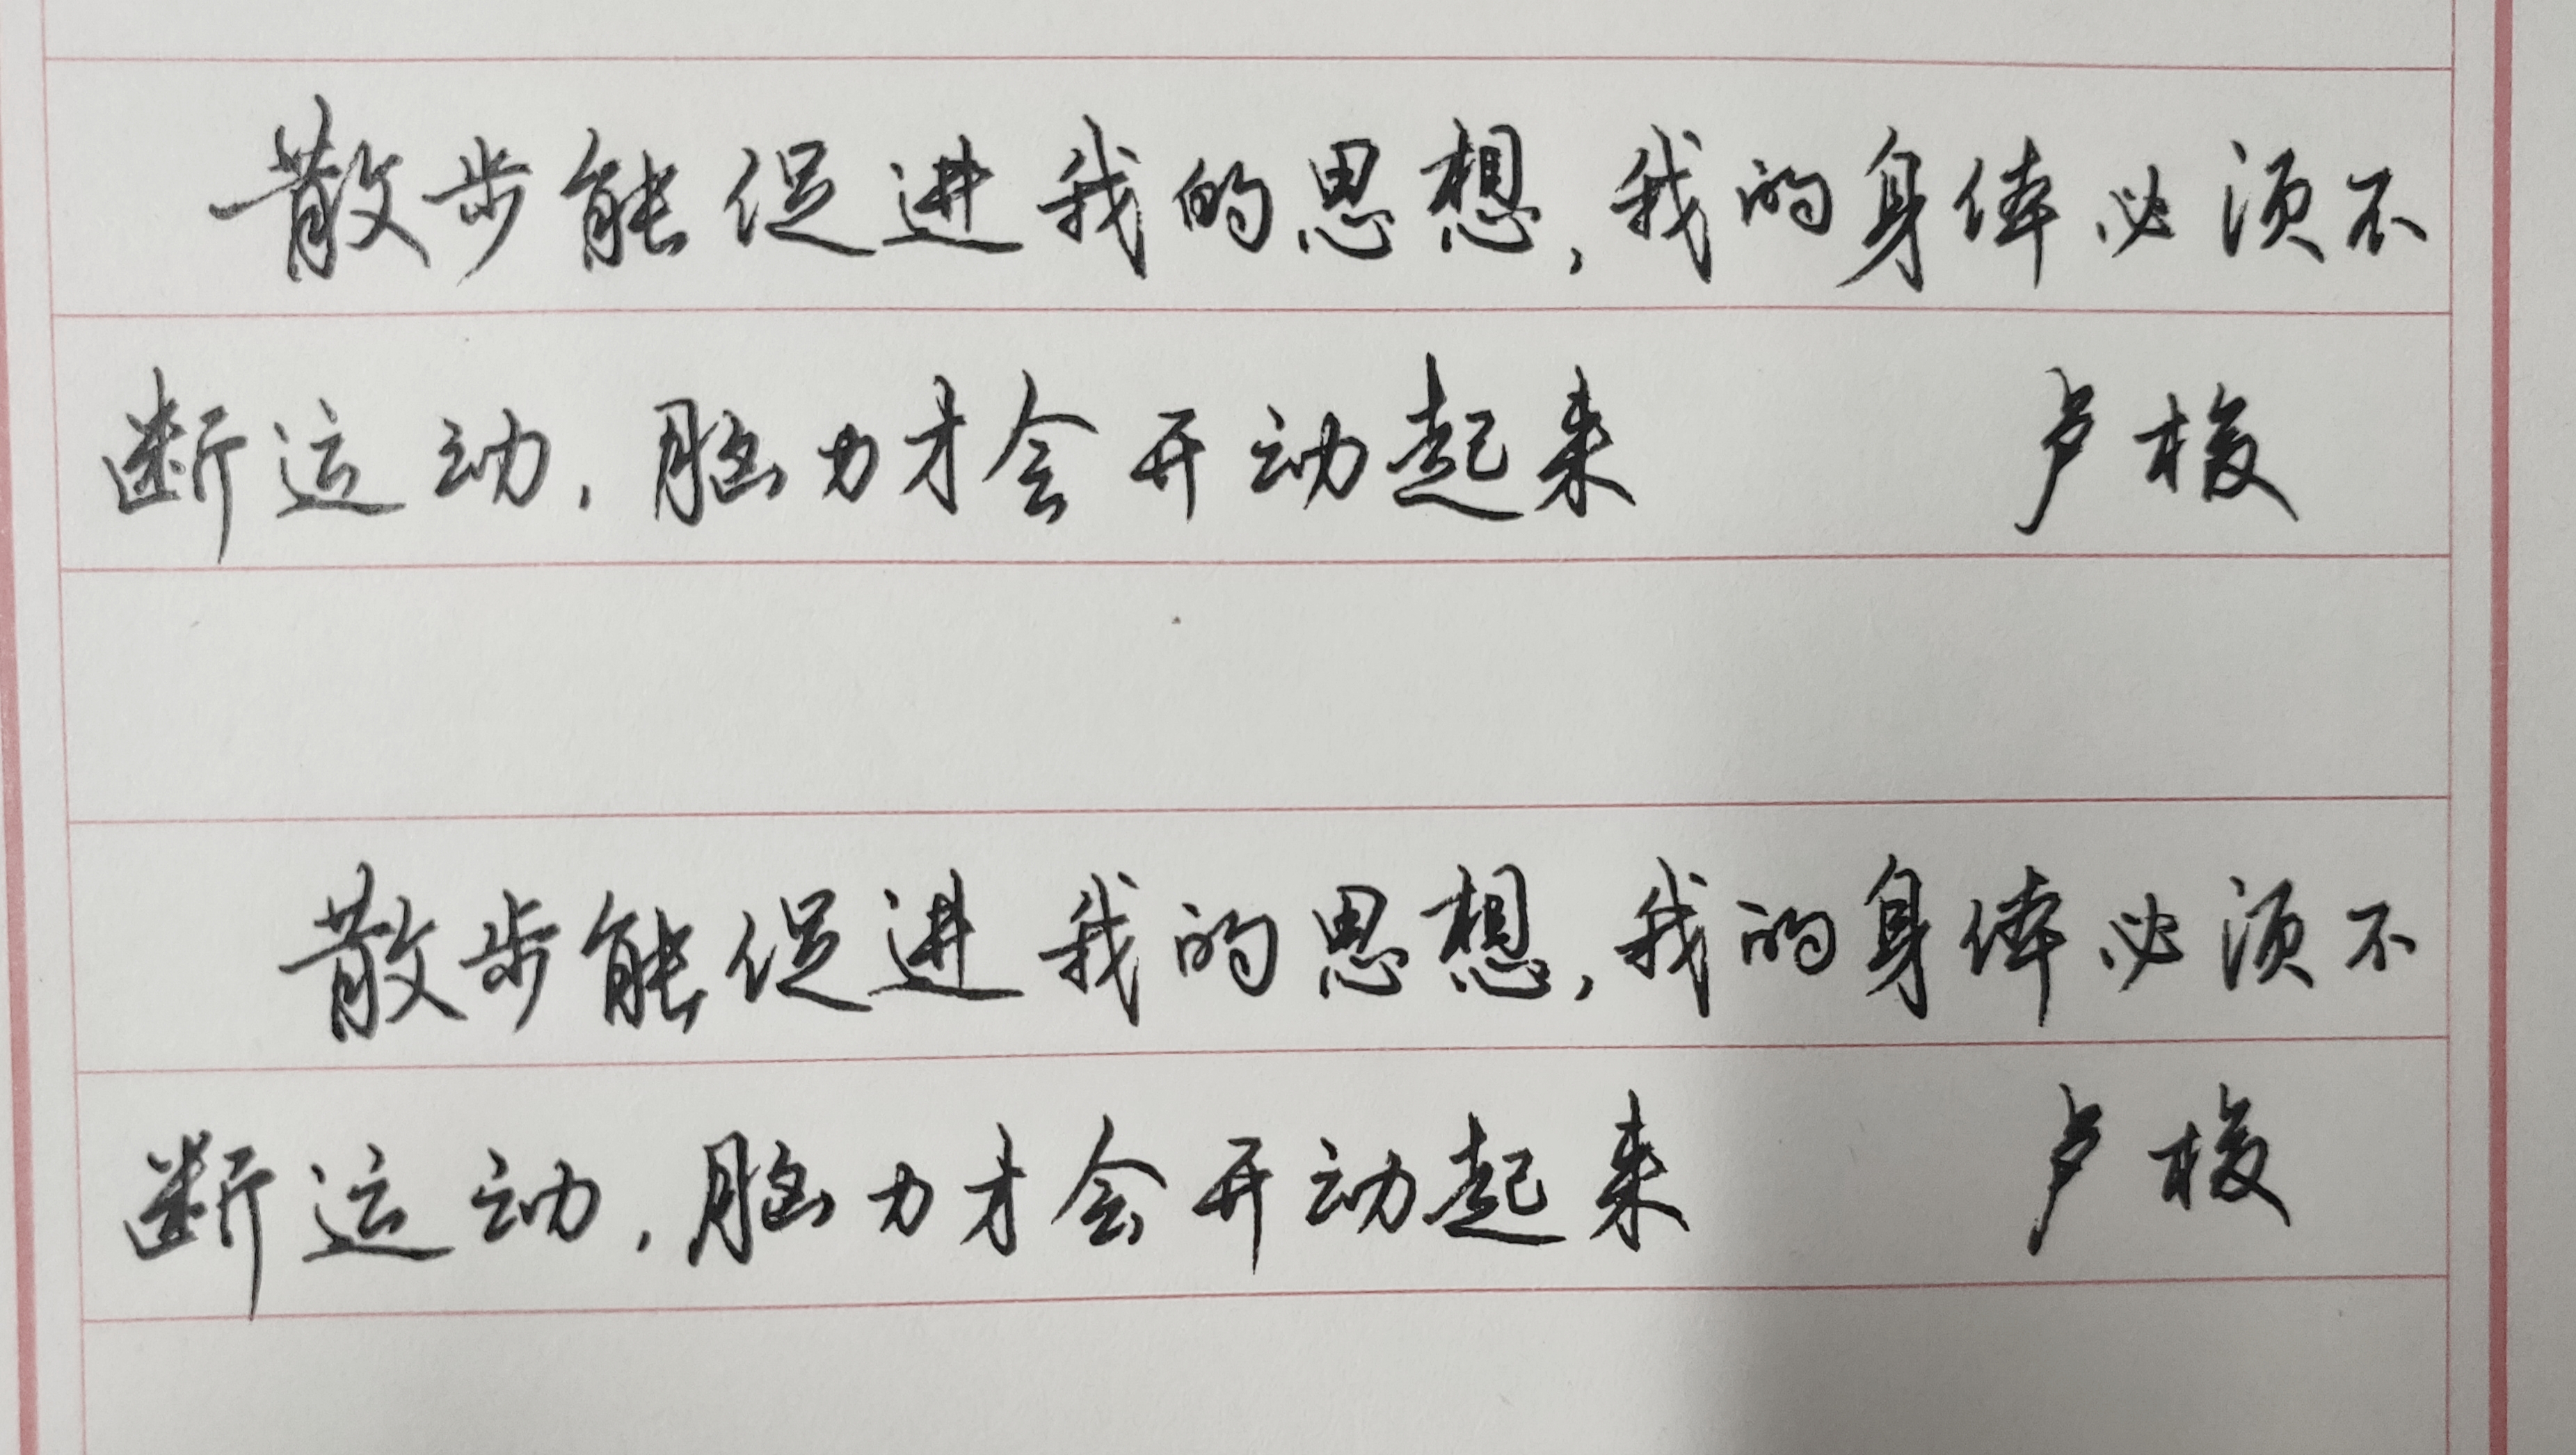 散步能促进我的思想,我的身体必须不
断运动,脑力才会开动起来 卢梭
散步能促进我的思想,我的身体必须不
断运动,脑力才会开动起来 卢梭